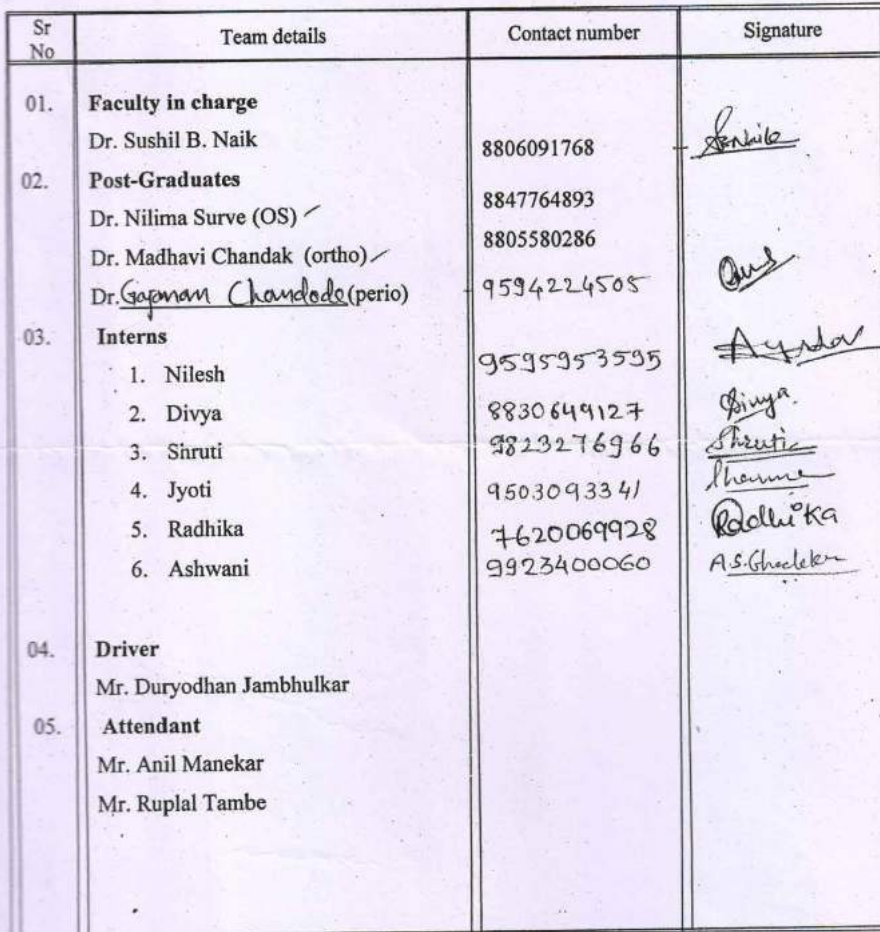 Sr No Team details Contact number Signature
01. Faculty in charge
Dr. Sushil B. Naik 8806091768
02. Post-Graduates
Dr. Nilima Surve (OS) 8847764893
Dr. Madhavi Chandak (ortho) 8805580286
Dr. Chandode (perio) 9594224505
03. Interns
1. Nilesh 9595953595
2. Divya 8830649127 Divya.
3. Shruti 9823276966 Shruti
4. Jyoti 9503093341
5. Radhika 7620069928 Radhika
6. Ashwani 9923400060
04. Driver
Mr. Duryodhan Jambhulkar
05. Attendant
Mr. Anil Manekar
Mr. Ruplal Tambe